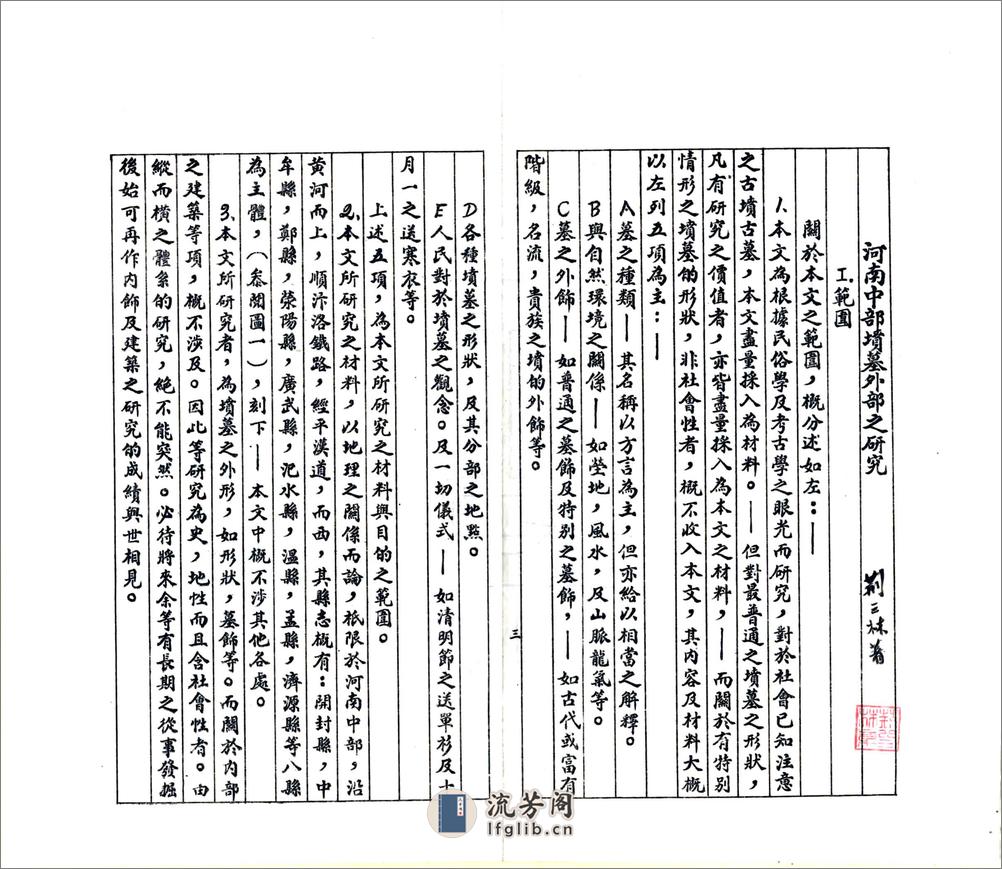 河南中部墳墓外部之研究 荆三林著
I.範圍
關於本文之範圍，概分述如左：——
1.本文為根據民俗學及考古學之眼光而研究，對於社會已知注意
之古墳古墓，本文盡量採入為材料。——但對最普通之墳墓之形狀，
凡有研究之價值者，亦皆盡量採入為本文之材料，——而關於有特別
情形之墳墓的形狀，非社會性者，概不收入本文，其內容及材料大概
以左列五項為主：——
A墓之種類——其名稱以方言為主，但亦給以相當之解釋。
B與自然環境之關係——如塋地，風水，及山脈龍氣等。
C墓之外飾——如普通之墓飾及特别之墓飾，——如古代或富有
階級，名流，貴族之墳的外飾等。
三
D各種墳墓之形狀，及其分部之地點。
E人民對於墳墓之觀念。及一切儀式——如清明節之送單衫及十
月一之送寒衣等。
上述五項，為本文所研究之材料與目的之範圍。
2.本文所研究之材料，以地理之關係而論，祇限於河南中部，沿
黃河而上，順汴洛鐵路，經平漢道，而西，其縣志概有：開封縣，中
牟縣，鄭縣，滎陽縣，廣武縣，汜水縣，溫縣，孟縣，濟源縣等八縣
為主體，（叅閱圖一），刻下——本文中概不涉其他各處。
3.本文所研究者，為墳墓之外形，如形狀，墓飾等。而關於內部
之建築等項，概不涉及。因此等研究為史，地性而且含社會性者。由
縱而橫之體系的研究，絕不能突然。必待將來余等有長期之從事發掘
後始可再作內飾及建築之研究的成績與世相見。
流芳阁
lfglib.cn